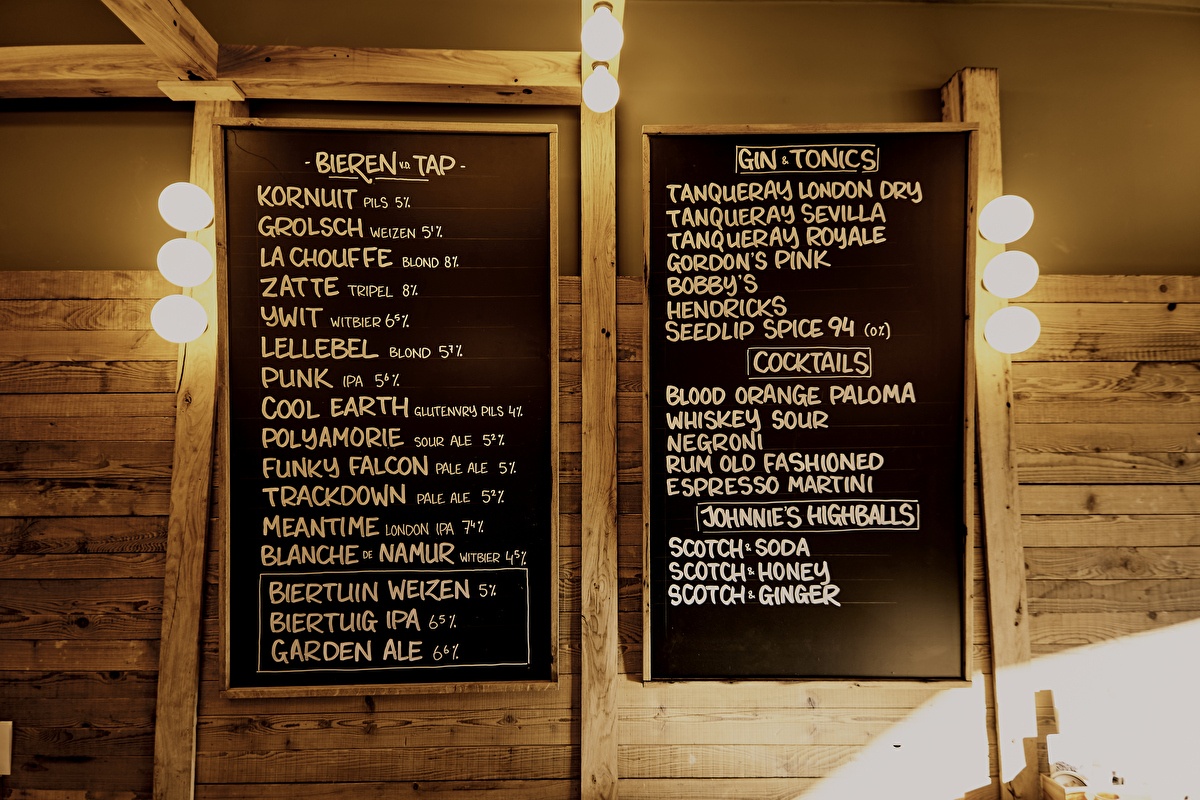 - BIEREN V.D. TAP -
KORNUIT PILS 5%
GROLSCH WEIZEN 5¹%
LA CHOUFFE BLOND 8%
ZATTE TRIPEL 8%
YWIT WITBIER 6⁵%
LELLEBEL BLOND 5⁷%
PUNK IPA 5⁶%
COOL EARTH GLUTENVRY PILS 4%
POLYAMORIE SOUR ALE 5²%
FUNKY FALCON PALE ALE 5%
TRACKDOWN PALE ALE 5²%
MEANTIME LONDON IPA 7⁴%
BLANCHE DE NAMUR WITBIER 4⁵%
BIERTUIN WEIZEN 5%
BIERTUIG IPA 6⁵%
GARDEN ALE 6⁶%
GIN & TONICS
TANQUERAY LONDON DRY
TANQUERAY SEVILLA
TANQUERAY ROYALE
GORDON'S PINK
BOBBY'S
HENDRICKS
SEEDLIP SPICE 94 (0%)
COCKTAILS
BLOOD ORANGE PALOMA
WHISKEY SOUR
NEGRONI
RUM OLD FASHIONED
ESPRESSO MARTINI
JOHNNIE'S HIGHBALLS
SCOTCH & SODA
SCOTCH & HONEY
SCOTCH & GINGER